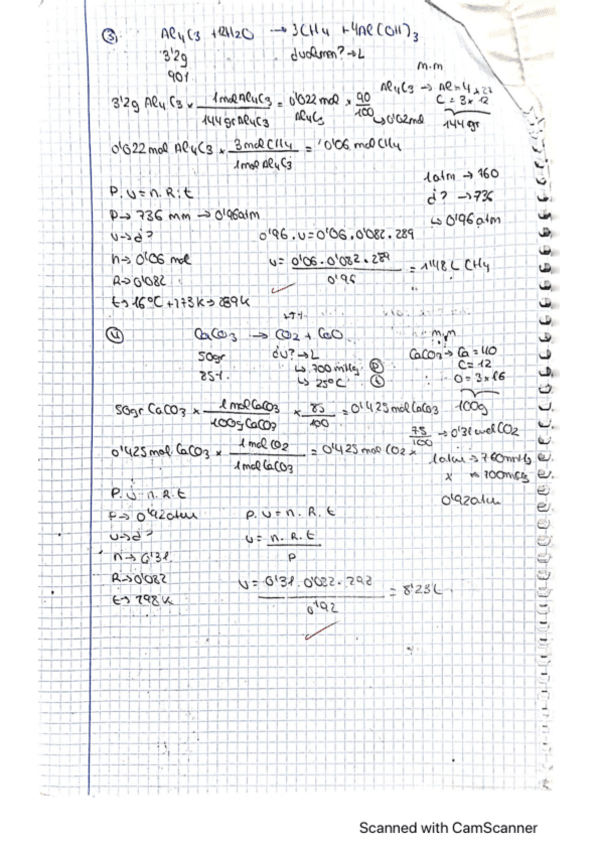 ③ Al4C3 + 12H2O → 3CH4 + 4Al(OH)3
3'2g
90%
m.m
3'2g Al4C3 × 1molAl4C3 / 144grAl4C3 = 0'022mol Al4C3 × 90/100 → 0'02mol
Al4C3 → Al = 4 × 27
C = 3 × 12
144gr
0'022mol Al4C3 × 3molCH4 / 1molAl4C3 = 0'06 molCH4
1atm → 760
d? → 736
↳ 0'96atm
P.v = n.R.t
P → 736 mm → 0'96atm
v → d?
n → 0'06 mol
R → 0'082
t → 16°C + 273k → 289k
0'96.v = 0'06.0'082.289
v = 0'06.0'082.289 / 0'96 = 1'48L CH4
④ CaCO3 → CO2 + CaO
50gr
85%
dv? → L
↳ 700mmHg P
↳ 25°C t
m.m
CaCO3 → Ca = 40
C = 12
O = 3×16
100g
50gr CaCO3 × 1molCaCO3 / 100gCaCO3 × 85/100 = 0'425molCaCO3
0'425mol CaCO3 × 1molCO2 / 1molCaCO3 = 0'425mol CO2 × 75/100 → 0'31molCO2
1atm → 760mmHg
x → 700mmHg
0'92atm
P.v = n.R.t
P → 0'92atm
v → d?
n → 0'31
R → 0'082
t → 298k
P.v = n.R.t
v = n.R.t / P
v = 0'31.0'082.292 / 0'92 = 8'23L
Scanned with CamScanner